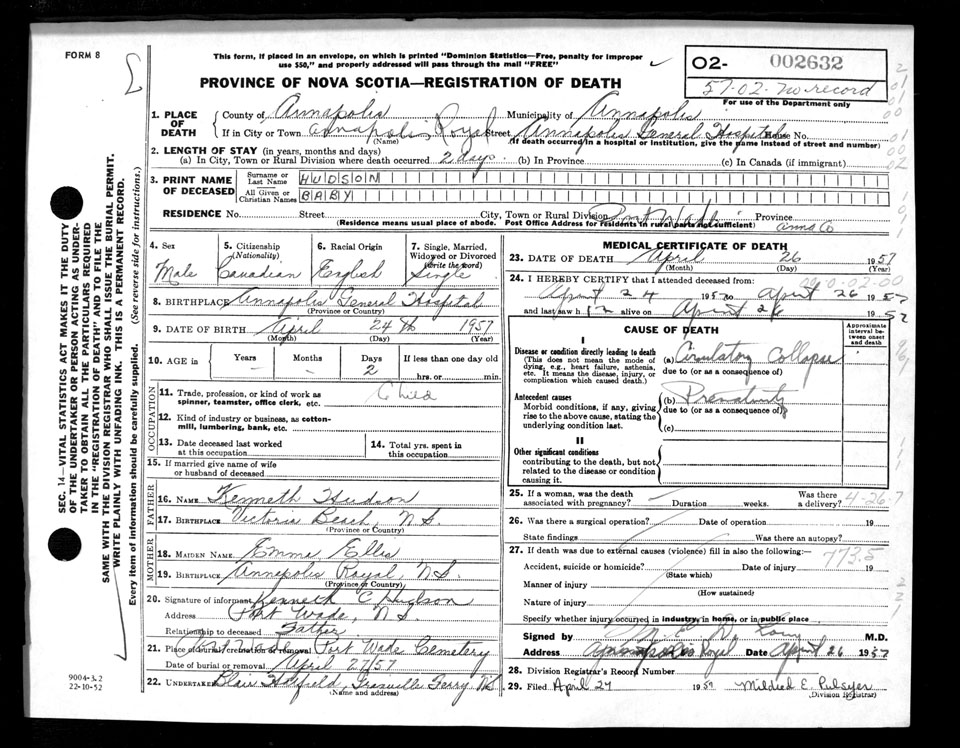 FORM 8
This form, if placed in an envelope, on which is printed "Dominion Statistics—Free, penalty for improper
use $50," and properly addressed will pass through the mail "FREE"
PROVINCE OF NOVA SCOTIA—REGISTRATION OF DEATH
O2- 002632
57-02- No record
For use of the Department only
1. PLACE OF DEATH
County of Annapolis Municipality of Annapolis
If in City or Town Annapolis Royal Street Annapolis General Hospital House No.
(Name) (If death occurred in a hospital or Institution, give the name instead of street and number)
2. LENGTH OF STAY (in years, months and days)
(a) In City, Town or Rural Division where death occurred 2 days. (b) In Province (c) In Canada (if immigrant)
3. PRINT NAME OF DECEASED
Surname or Last Name HUDSON
All Given or Christian Names BABY
RESIDENCE No. Street City, Town or Rural Division Port Wade Province Anna Co
(Residence means usual place of abode. Post Office Address for residents in rural parts not sufficient)
4. Sex Male
5. Citizenship (Nationality) Canadian
6. Racial Origin English
7. Single, Married, Widowed or Divorced (Write the word) Single
8. BIRTHPLACE Annapolis General Hospital
(Province or Country)
9. DATE OF BIRTH April 24th 1957
(Month) (Day) (Year)
10. AGE in Years Months Days If less than one day old
- - 2 hrs. or min.
OCCUPATION
11. Trade, profession, or kind of work as spinner, teamster, office clerk, etc. Child
12. Kind of industry or business, as cotton-mill, lumbering, bank, etc.
13. Date deceased last worked at this occupation
14. Total yrs. spent in this occupation
15. If married give name of wife or husband of deceased
FATHER
16. NAME Kenneth Hudson
17. BIRTHPLACE Victoria Beach, N S.
(Province or Country)
MOTHER
18. MAIDEN NAME Emma Ellis
19. BIRTHPLACE Annapolis Royal, N S.
(Province or Country)
20. Signature of informant Kenneth C Hudson
Address Port Wade, N S
Relationship to deceased Father
21. Place of burial, cremation or removal Port Wade Cemetery
Date of burial or removal April 27/57
22. UNDERTAKER Blair Granville Ferry, NS
(Name and address)
MEDICAL CERTIFICATE OF DEATH
23. DATE OF DEATH April 26 1957
(Month) (Day) (Year)
24. I HEREBY CERTIFY that I attended deceased from:
April 24 1957 to April 26 1957
and last saw h im alive on April 26 1957
CAUSE OF DEATH
Approximate interval between onset and death
I
Disease or condition directly leading to death (a) Circulatory Collapse
(This does not mean the mode of dying, e.g., heart failure, asthenia, etc. It means the disease, injury, or complication which caused death.)
due to (or as a consequence of)
Antecedent causes (b) Prematurity
Morbid conditions, if any, giving rise to the above cause, stating the underlying condition last.
due to (or as a consequence of)
(c)
II
Other significant conditions
contributing to the death, but not related to the disease or condition causing it.
25. If a woman, was the death associated with pregnancy? Duration weeks. Was there a delivery?
4-26-7
26. Was there a surgical operation? Date of operation 19
State findings Was there an autopsy?
27. If death was due to external causes (violence) fill in also the following:—
7735
Accident, suicide or homicide? Date of injury 19
(State which)
Manner of injury
(How sustained)
Nature of injury
Specify whether injury occurred in industry, in home, or in public place
Signed by M.D.
Address Annapolis Royal Date April 26 1957
28. Division Registrar's Record Number
29. Filed April 27 1957 Mildred E. Pulsifer
(Division Registrar)
SEC. 14—VITAL STATISTICS ACT MAKES IT THE DUTY
OF THE UNDERTAKER OR PERSON ACTING AS UNDER-
TAKER TO OBTAIN ALL THE PARTICULARS REQUIRED
IN THE "REGISTRATION OF DEATH" AND TO FILE THE
SAME WITH THE DIVISION REGISTRAR WHO SHALL ISSUE THE BURIAL PERMIT.
WRITE PLAINLY WITH UNFADING INK. THIS IS A PERMANENT RECORD.
Every item of information should be carefully supplied. (See reverse side for instructions.)
9004-3.2
22-10-52